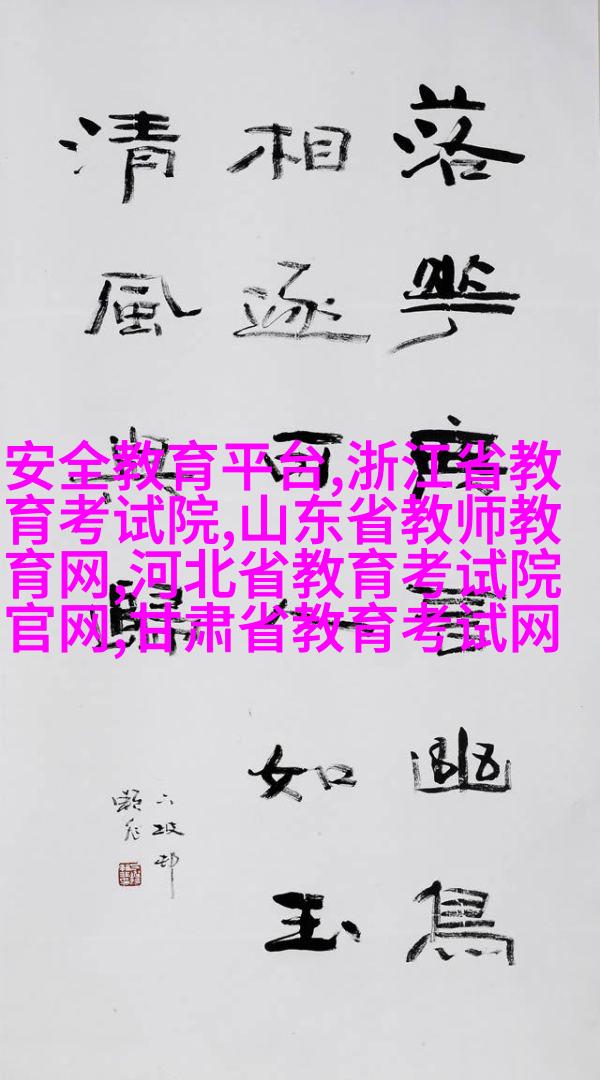 安全教育平台,浙江省教
育考试院,山东省教师教
育网,河北省教育考试院
官网,甘肃省教育考试网
落華言幽鳥
相逐可人如玉
清風與歸